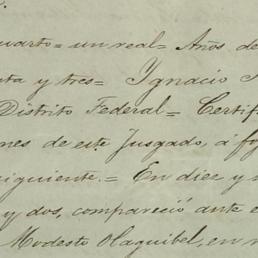 cuarto = un real = Años de
ta y tres = Ignacio
Distrito Federal = Certifi
nes de este Jusgado, á fo
siguiente. = En diez y
y dos, compareció ante e
Modesto Olaguibel, en